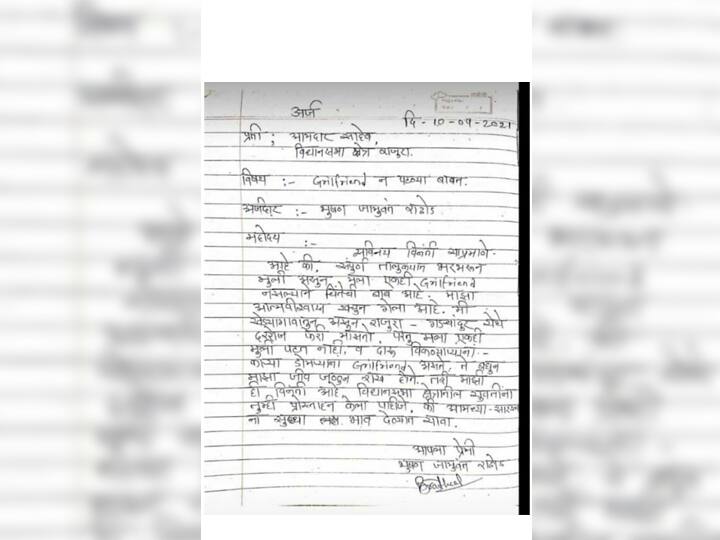 अर्ज
दि - 10-09-2021
प्रती ; आमदार साहेब,
विधानसभा क्षेत्र राजुरा.
विषय :- Girlfriend न पटण्या बाबत.
अर्जदार :- भुषण जामुवंत राठोड
महोदय :-
सविनय विनंती याप्रमाणे
आहे की, संपुर्ण तालुक्यात भरभरून
मुली असुन मला एकही Girlfriend
नसल्याने चिंतेची बाब आहे. माझा
आत्मविश्वास खचुन गेला आहे. मी
खेड्यागावातुन असुन राजुरा - गडचांदुर येथे
दररोज फेरी मारतो. परंतु मला एकही
मुली पटत नाही. व दारू विकणाऱ्याना -
काऱ्या डोमऱ्याना Girlfriend असते. ते बघुन
माझा जीव जळुन राख होते. तरी माझी
ही विनंती आहे विधानसभा क्षेत्रातील युवतींना
तुम्ही प्रोत्साहन केला पाहीजे. की आमच्या-सारख्या
ना सुद्धा भाव देण्यात यावा.
आपला प्रेमी
भुषण जामुवंत राठोड